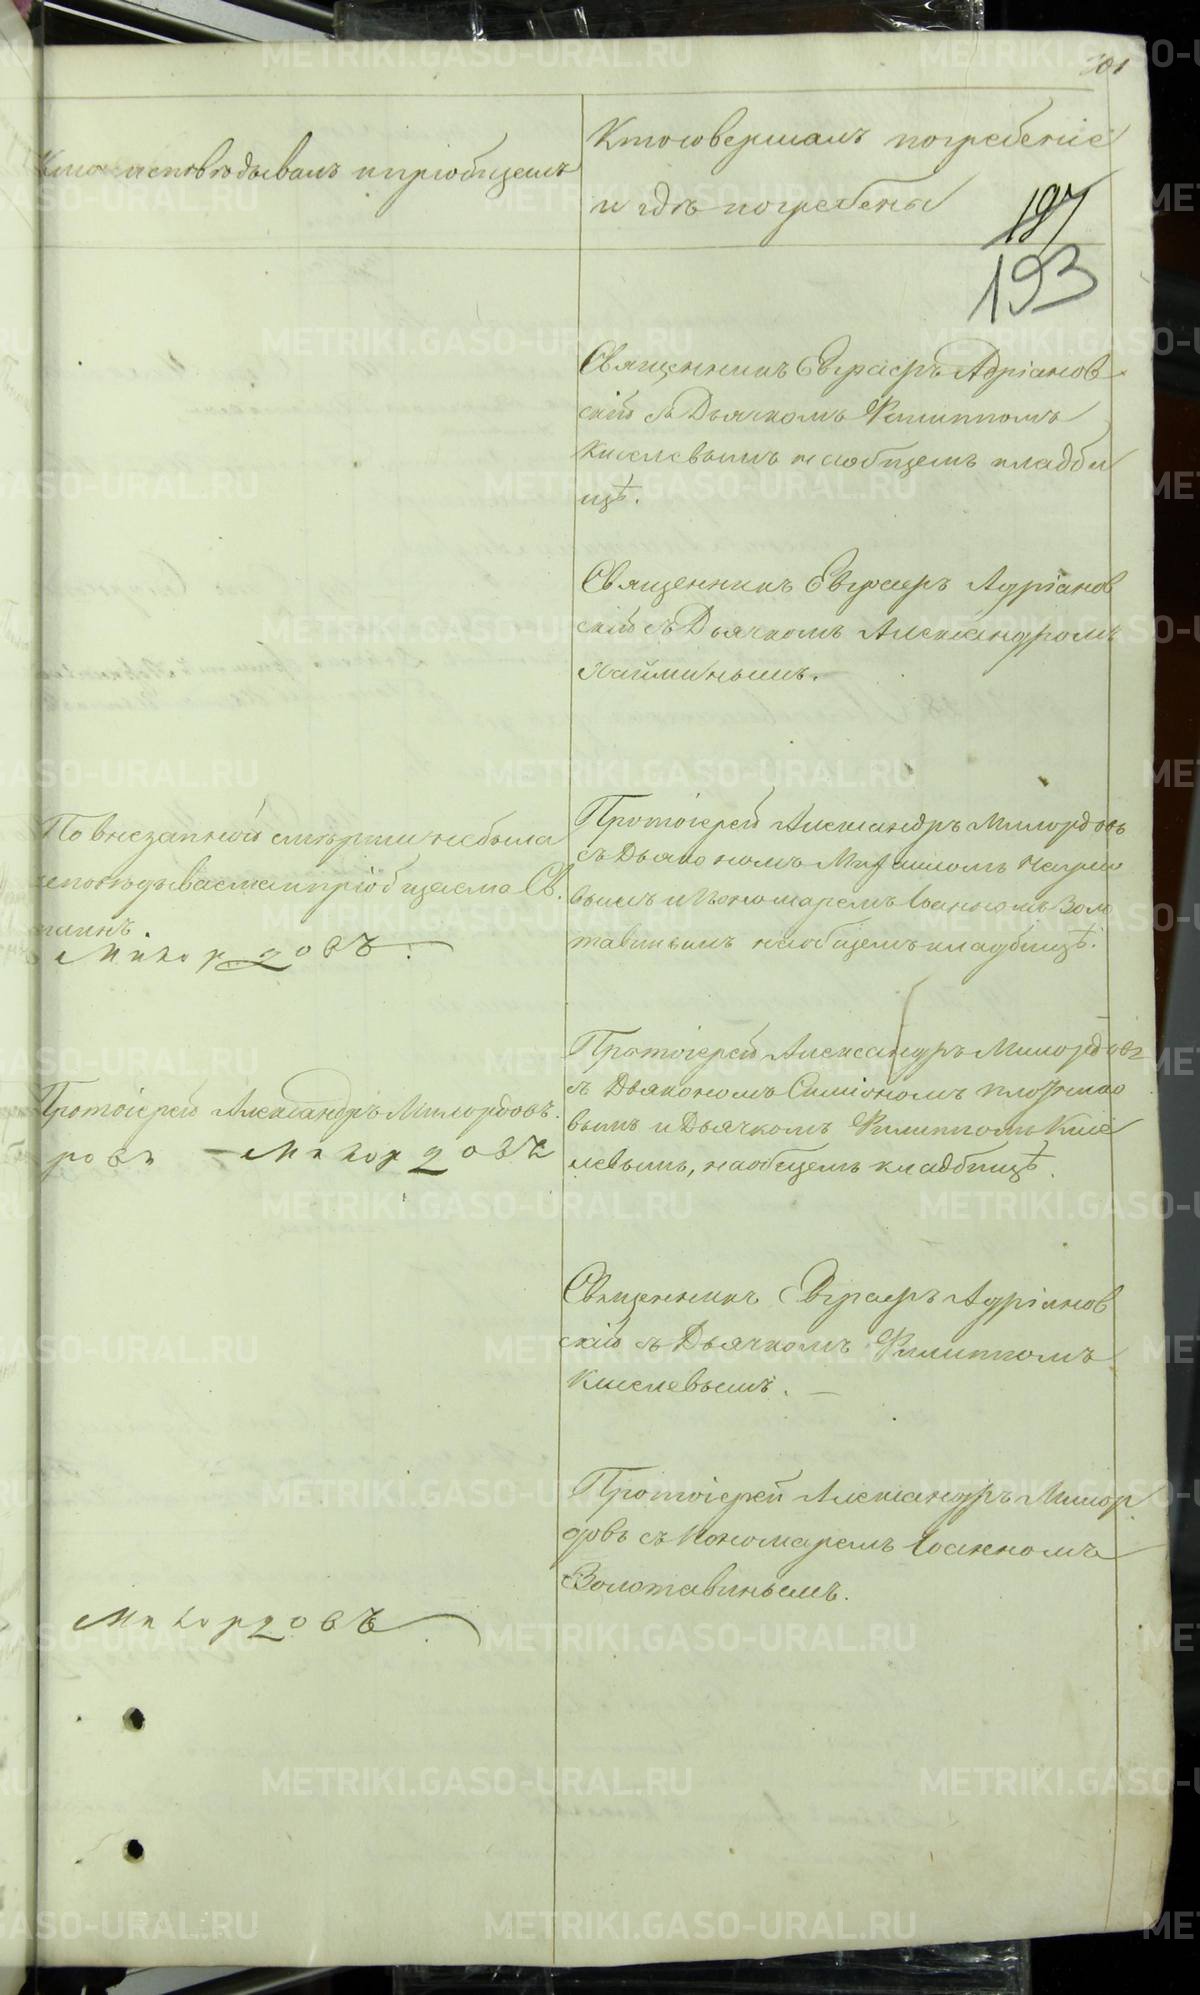 101
Кто исповѣдывалъ и пріобщалъ
Кто совершалъ погребеніе
и гдѣ погребены
187
193
Священникъ Евграфъ Адріанов
скій съ Дьячкомъ Филиппомъ
Киселевымъ на общемъ кладби
щѣ.
Священникъ Евграфъ Адріанов
скій съ Дьячкомъ Александромъ
Наймиьнымъ.
По внезапной смерти не была
исповѣдываема и пріобщаема Св.
таинъ.
Милордовъ.
Протоіерей Александръ Милордовъ
съ Дьякономъ Михаиломъ
вымъ и Пономаремъ Іоанномъ Золо
тавинымъ на общемъ кладбищѣ.
Протоіерей Александръ Милордовъ.
Милордовъ
Протоіерей Александръ Милордовъ
съ Дьякономъ Симіономъ Плотнико
вымъ и Дьячкомъ Филиппомъ Кисе
левымъ, на общемъ кладбищѣ.
Священникъ Евграфъ Адріанов
скій съ Дьячкомъ Филиппомъ
Киселевымъ.
Протоіерей Александръ Милор
довъ съ Пономаремъ Іоанномъ
Золотавинымъ.
Милордовъ
METRIKI.GASO-URAL.RU